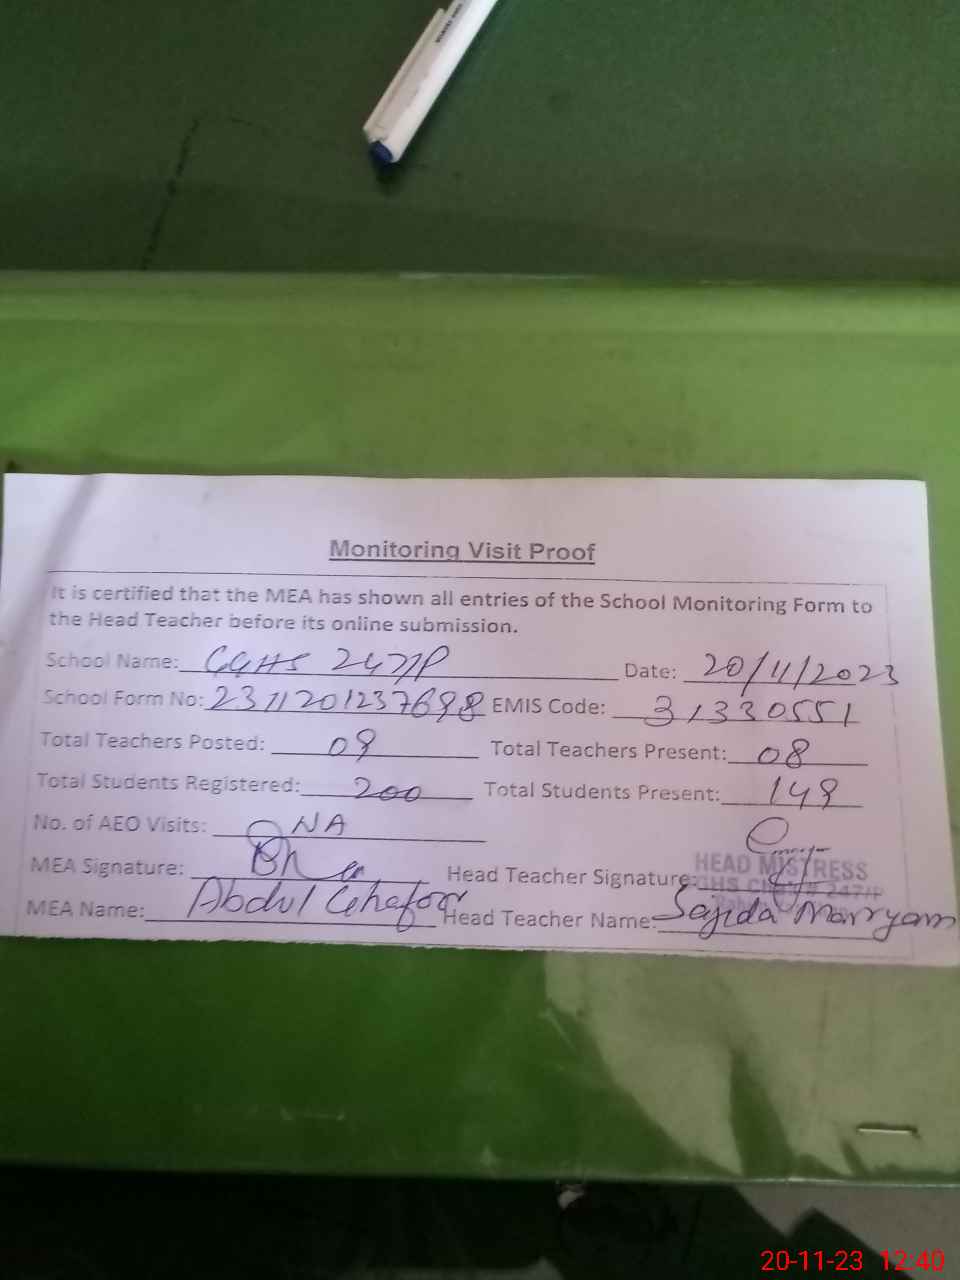 Monitoring Visit Proof
It is certified that the MEA has shown all entries of the School Monitoring Form to
the Head Teacher before its online submission.
School Name: GGHS 247/P Date: 20/11/2023
School Form No: 2311201237698 EMIS Code: 31330551
Total Teachers Posted: 09 Total Teachers Present: 08
Total Students Registered: 200 Total Students Present: 149
No. of AEO Visits: NA
MEA Signature: Head Teacher Signature:
HEAD MISTRESS
247/P
MEA Name: Abdul Ghafoor Head Teacher Name: Sajida Marryam
20-11-23 12:40